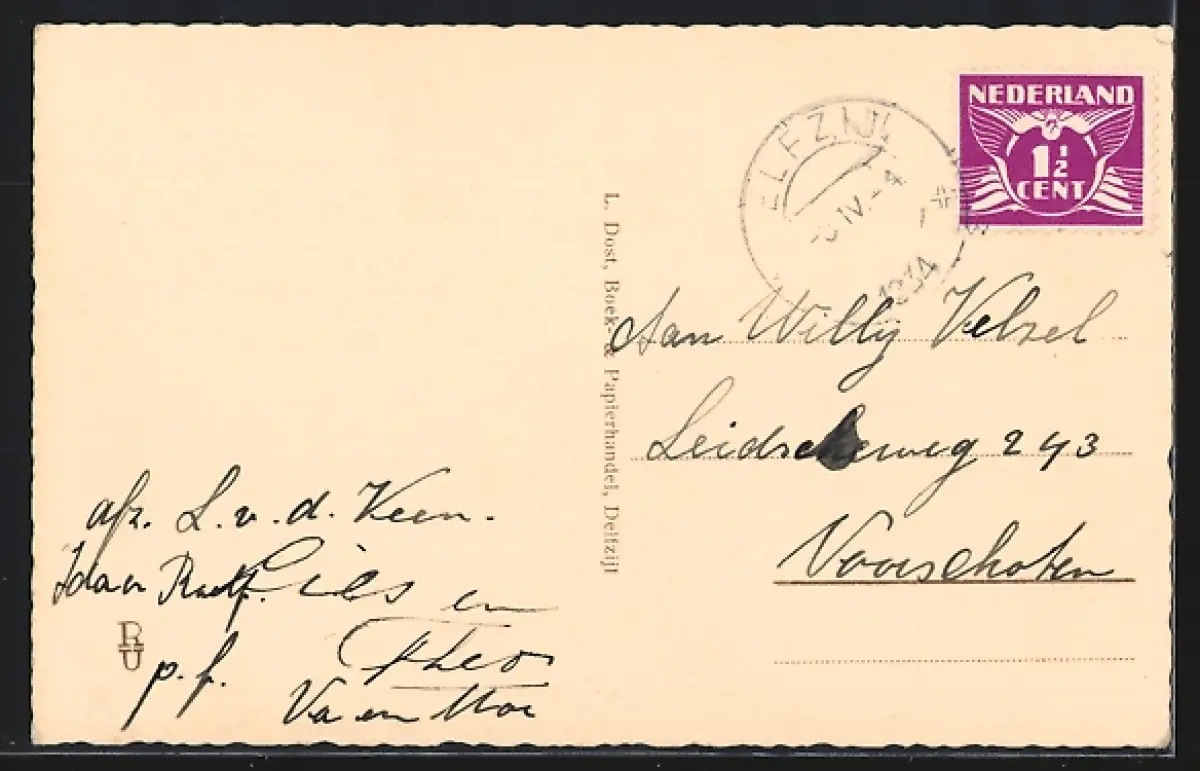 NEDERLAND
1½
CENT
ELFZIJL
IV.
1934
L. Dost, Boek- & Papierhandel, Delfzijl
Aan Willy Velzel
Leidscheweg 243
Voorschoten
afz. L. v. d. Keen.
Ida en
Cies en
Theo
p. f.
Va en Moe
RU